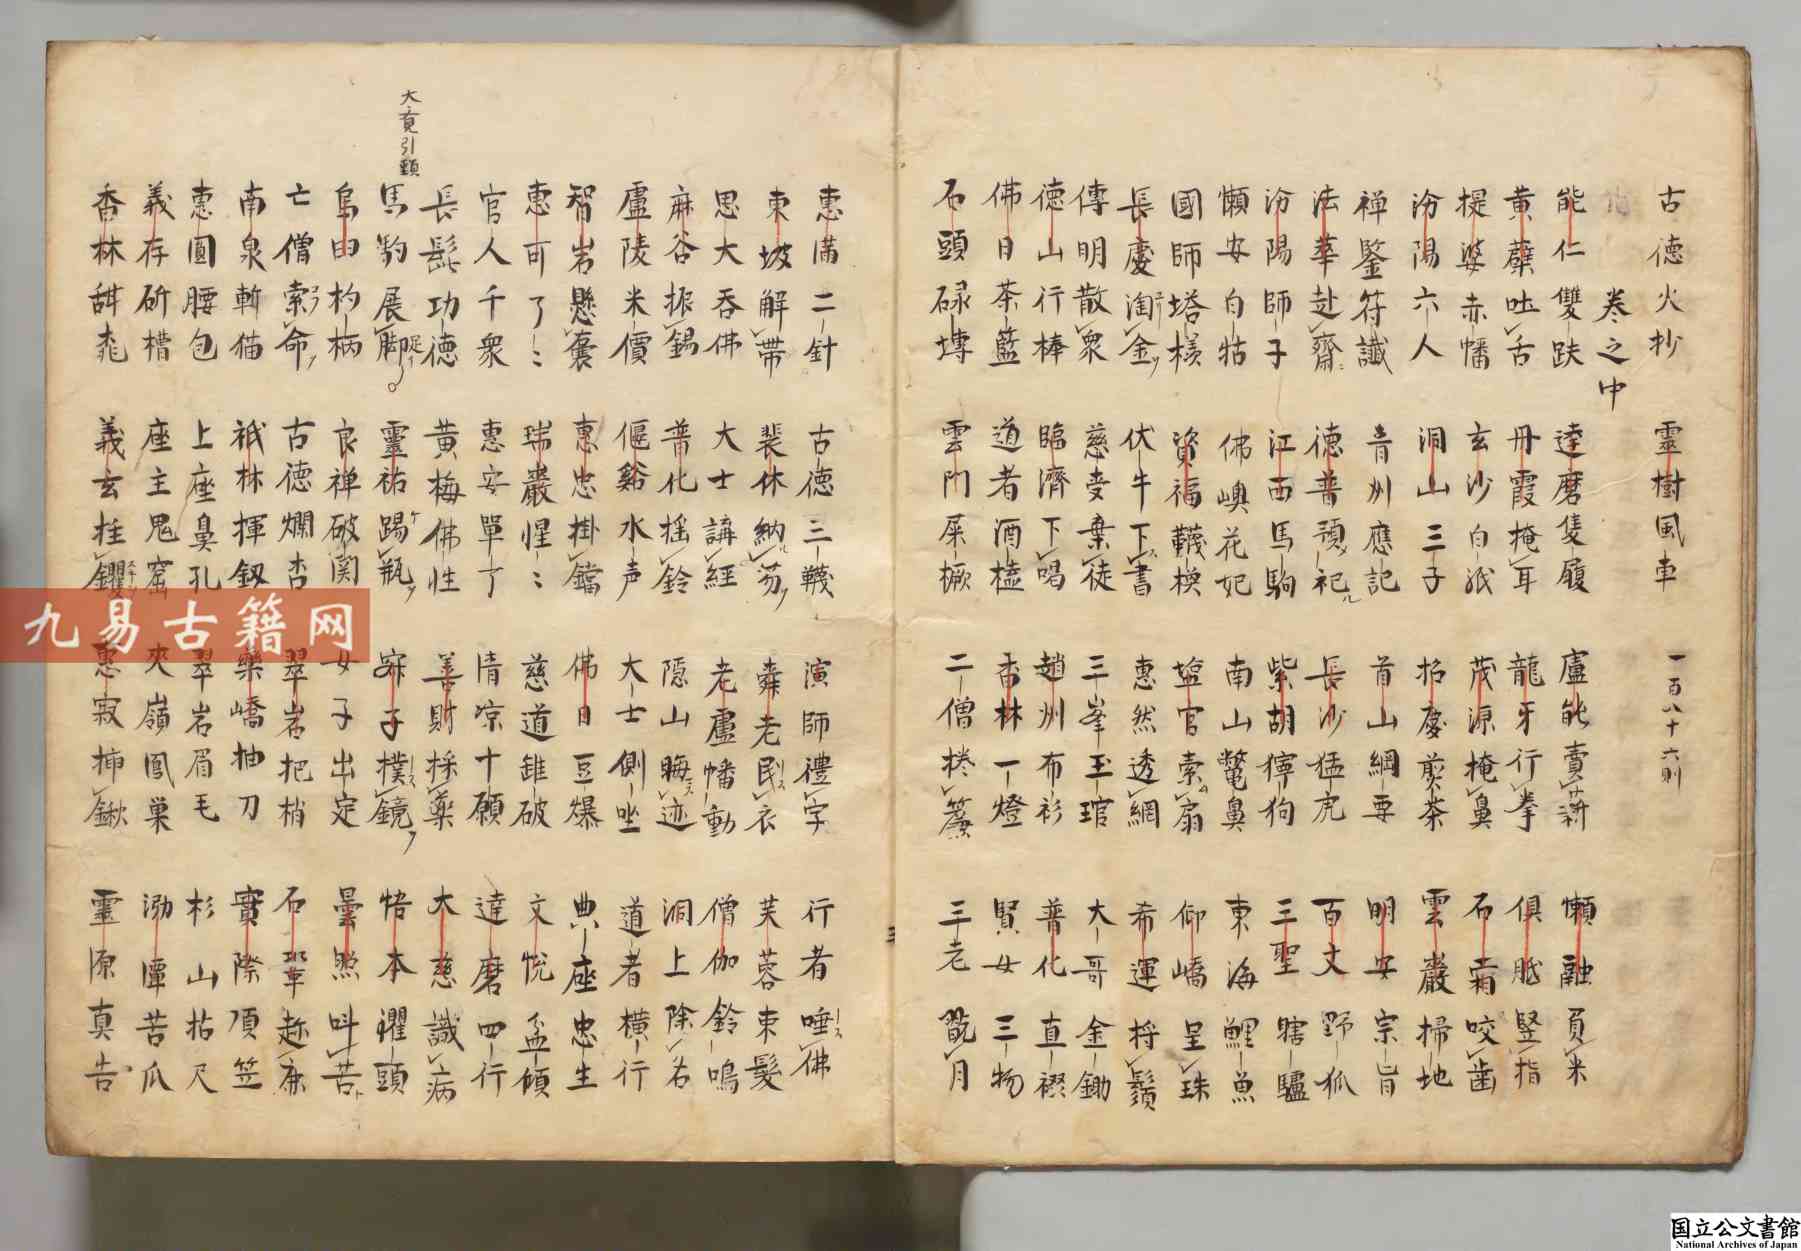 古德火抄 靈樹風車 一百八十六則
卷之中
能仁雙趺 達磨隻履 盧能賣薪 懶融負米
黃蘗吐舌 丹霞掩耳 龍牙行拳 俱胝竪指
提婆赤幡 玄沙白紙 茂源掩鼻 石霜咬齒
汾陽六人 洞山三子 招慶煎茶 雲巖掃地
禅鑒符讖 青州應記 首山綱要 明安宗旨
法華赴齋 德普預祀 長沙猛虎 百丈野狐
汾陽師子 江西馬駒 紫胡獰狗 三聖瞎驢
懶安白牯 佛嶼花妃 南山鼈鼻 東海鯉魚
國師塔樣 資福韈模 塩官索扇 仰嶠呈珠
長慶淘金 伏牛下書 惠然透網 希運捋鬚
傳明散衆 慈受棄徒 三峯玉琯 大哥金鋤
德山行棒 臨濟下喝 趙州布衫 普化直裰
佛日茶籃 道者酒榼 香林一燈 賢女三物
石頭碌塼 雲門屎橛 二僧捲簾 三老翫月
惠滿二針 古德三韈 演師禮字 行者唾佛
東坡解帶 裴休納笏 舜老民衣 芙蓉束髮
思大吞佛 大士講經 老盧幡動 僧伽鈴鳴
麻谷振錫 普化揺鈴 隠山晦迹 洞上除名
盧陵米價 偃谿水声 大士側坐 道者橫行
智岩懸囊 惠忠掛鐺 佛日豆爆 典座忠生
惠可了〻 瑞巖惺〻 慈道錐破 文悅盆傾
官人千衆 惠安單丁 清凉十願 達磨四行
長髭功德 黃梅佛性 善財採藥 大慈識病
大竟引頸
馬駒展脚 靈祐踢瓶 寂子撲鏡 悟本灈頭
烏臼杓柄 良禅破関 女子出定 曇照叫苦
亡僧索命 古德爛杏 翠岩把梢 石鞏趂鹿
南泉斬猫 祇林揮釼 藥嶠抽刀 實際頂笠
惠圓腰包 上座鼻孔 翠岩眉毛 杉山拈尺
義存斫槽 座主鬼窟 夾嶺鳳巢 泐潭苦瓜
香林甜 義玄拄钁 惠寂揷鍬 靈源真告
九易古籍网
国立公文書館
National Archives of Japan